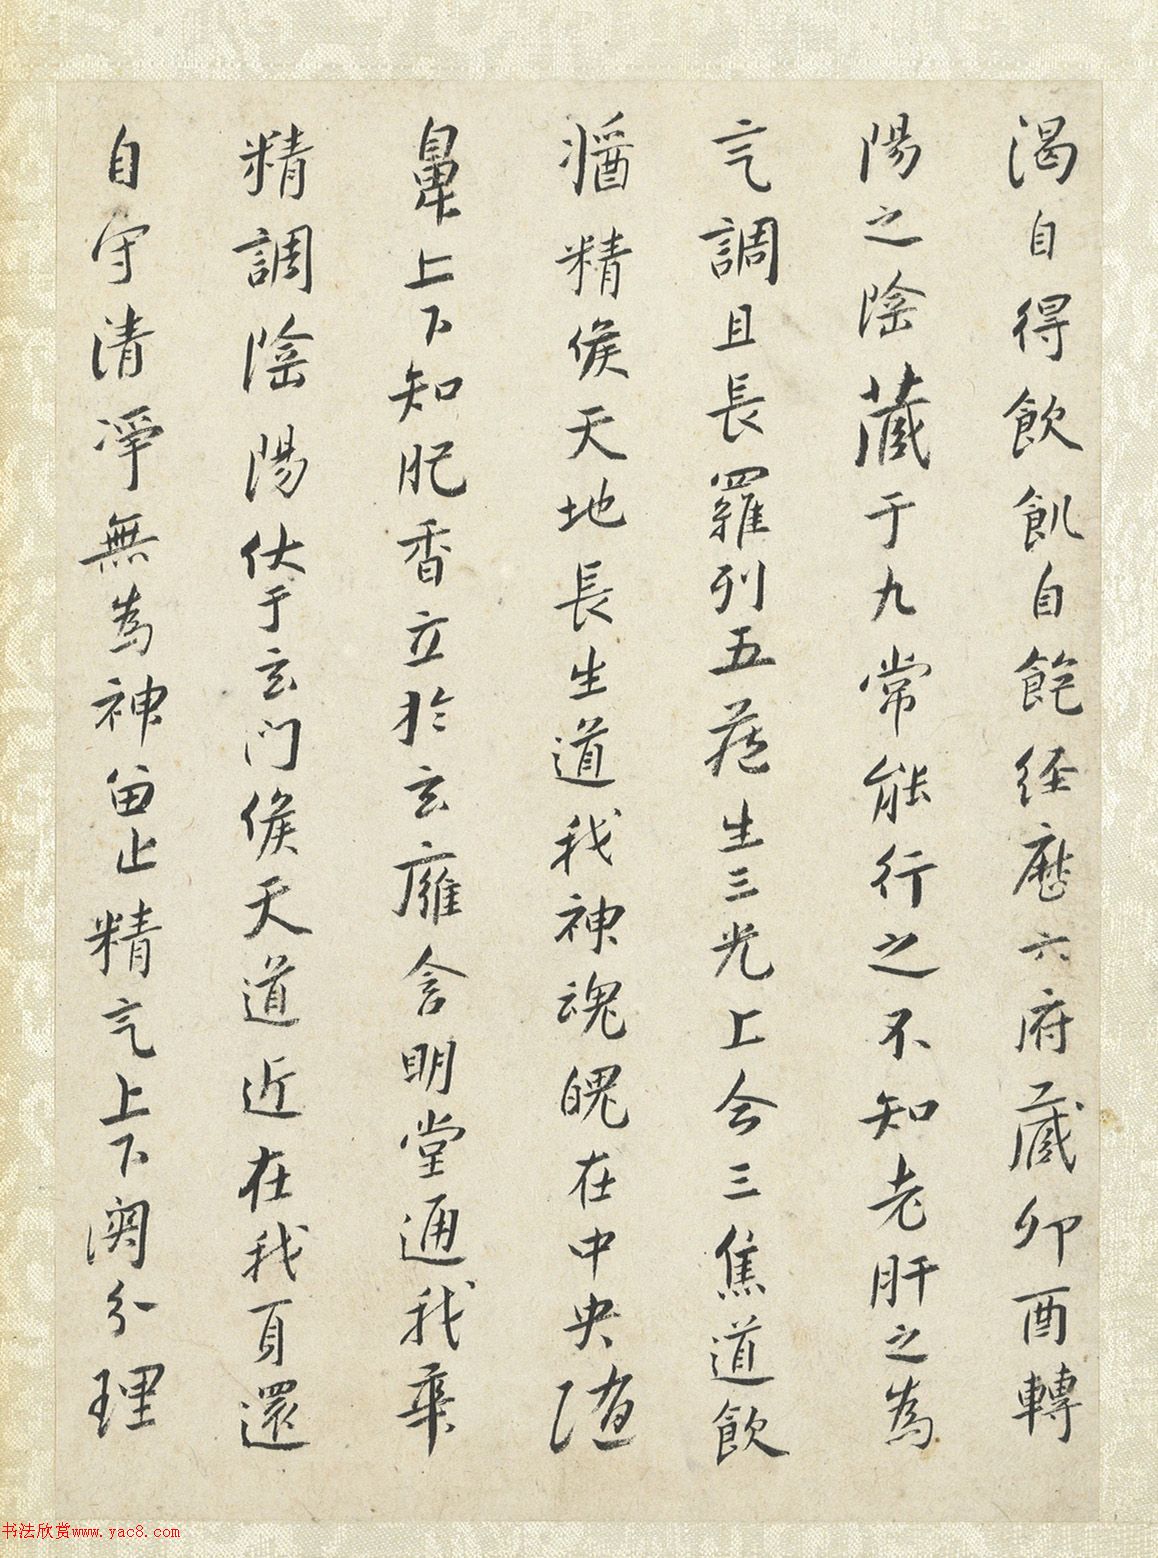 渴自得飲飢自飽經歷六府藏卯酉轉
陽之陰藏于九常能行之不知老肝之為
氣調且長羅列五藏生三光上合三焦道飲
漿精候天地長生道我神魂魄在中央隨
鼻上下知肥香立於玄廱含明堂通我華
精調陰陽伏于玄門候天道近在我頁還
自守清淨無為神留止精氣上下関分理
书法欣赏www.yac8.com